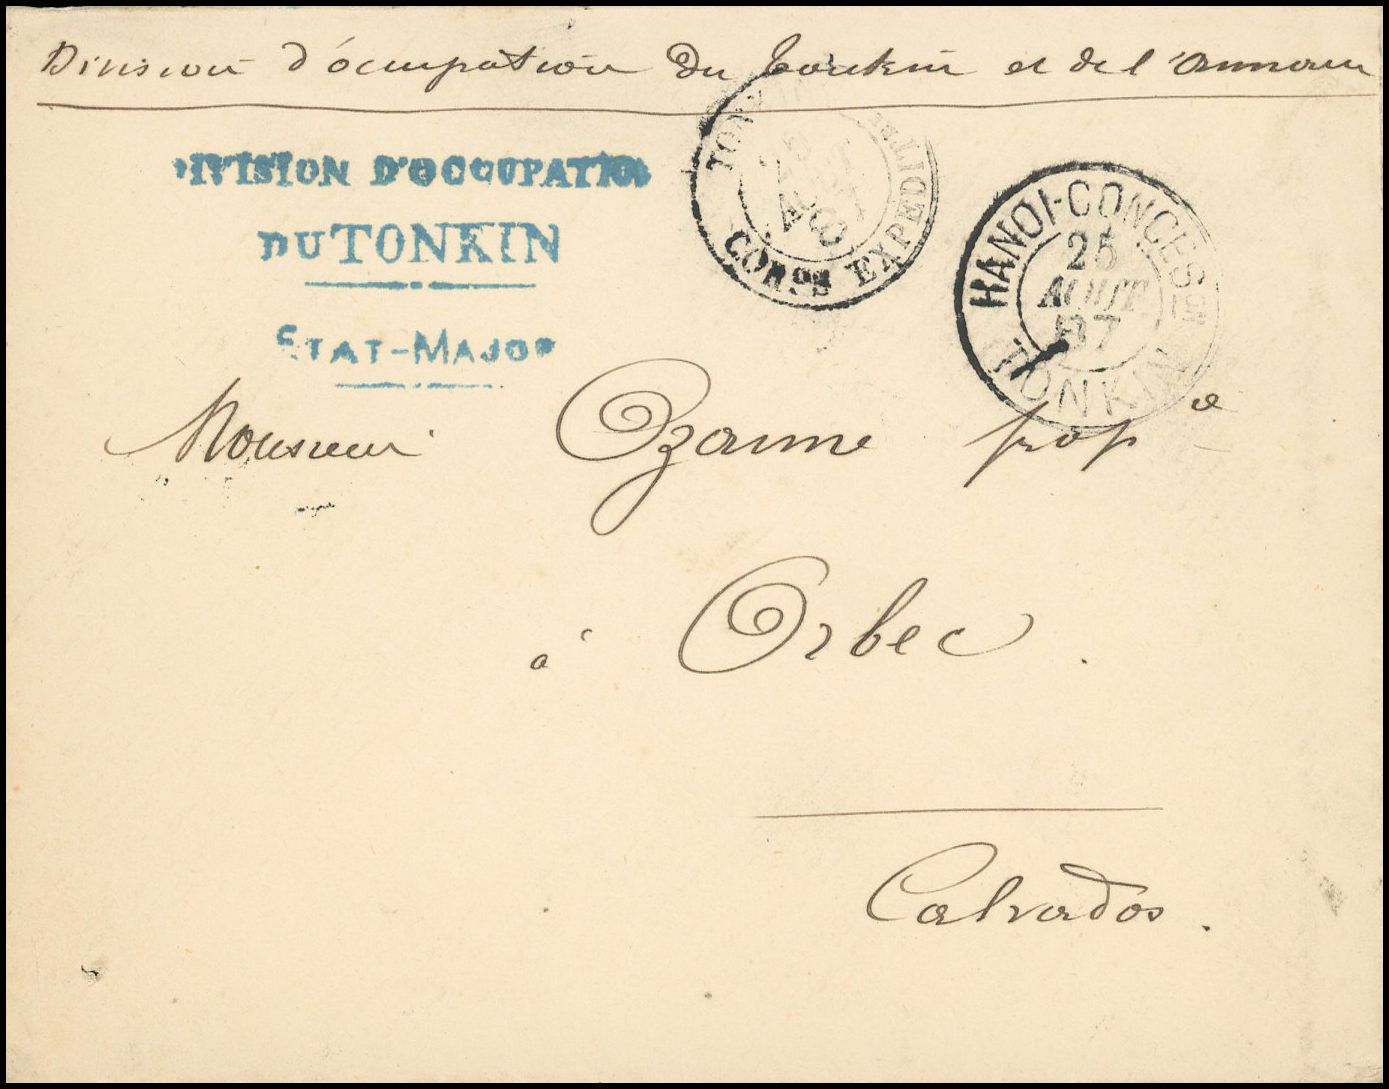 Division d'ócupation du Tonkin et de l'Annam
DIVISION D'OCCUPATION
DU TONKIN
ETAT-MAJOR
CORPS EXPEDITRE
HANOI-CONCESON
25
AOUT
87
TONKIN
Monsieur Ozanne propre
à Orbec.
Calvados.